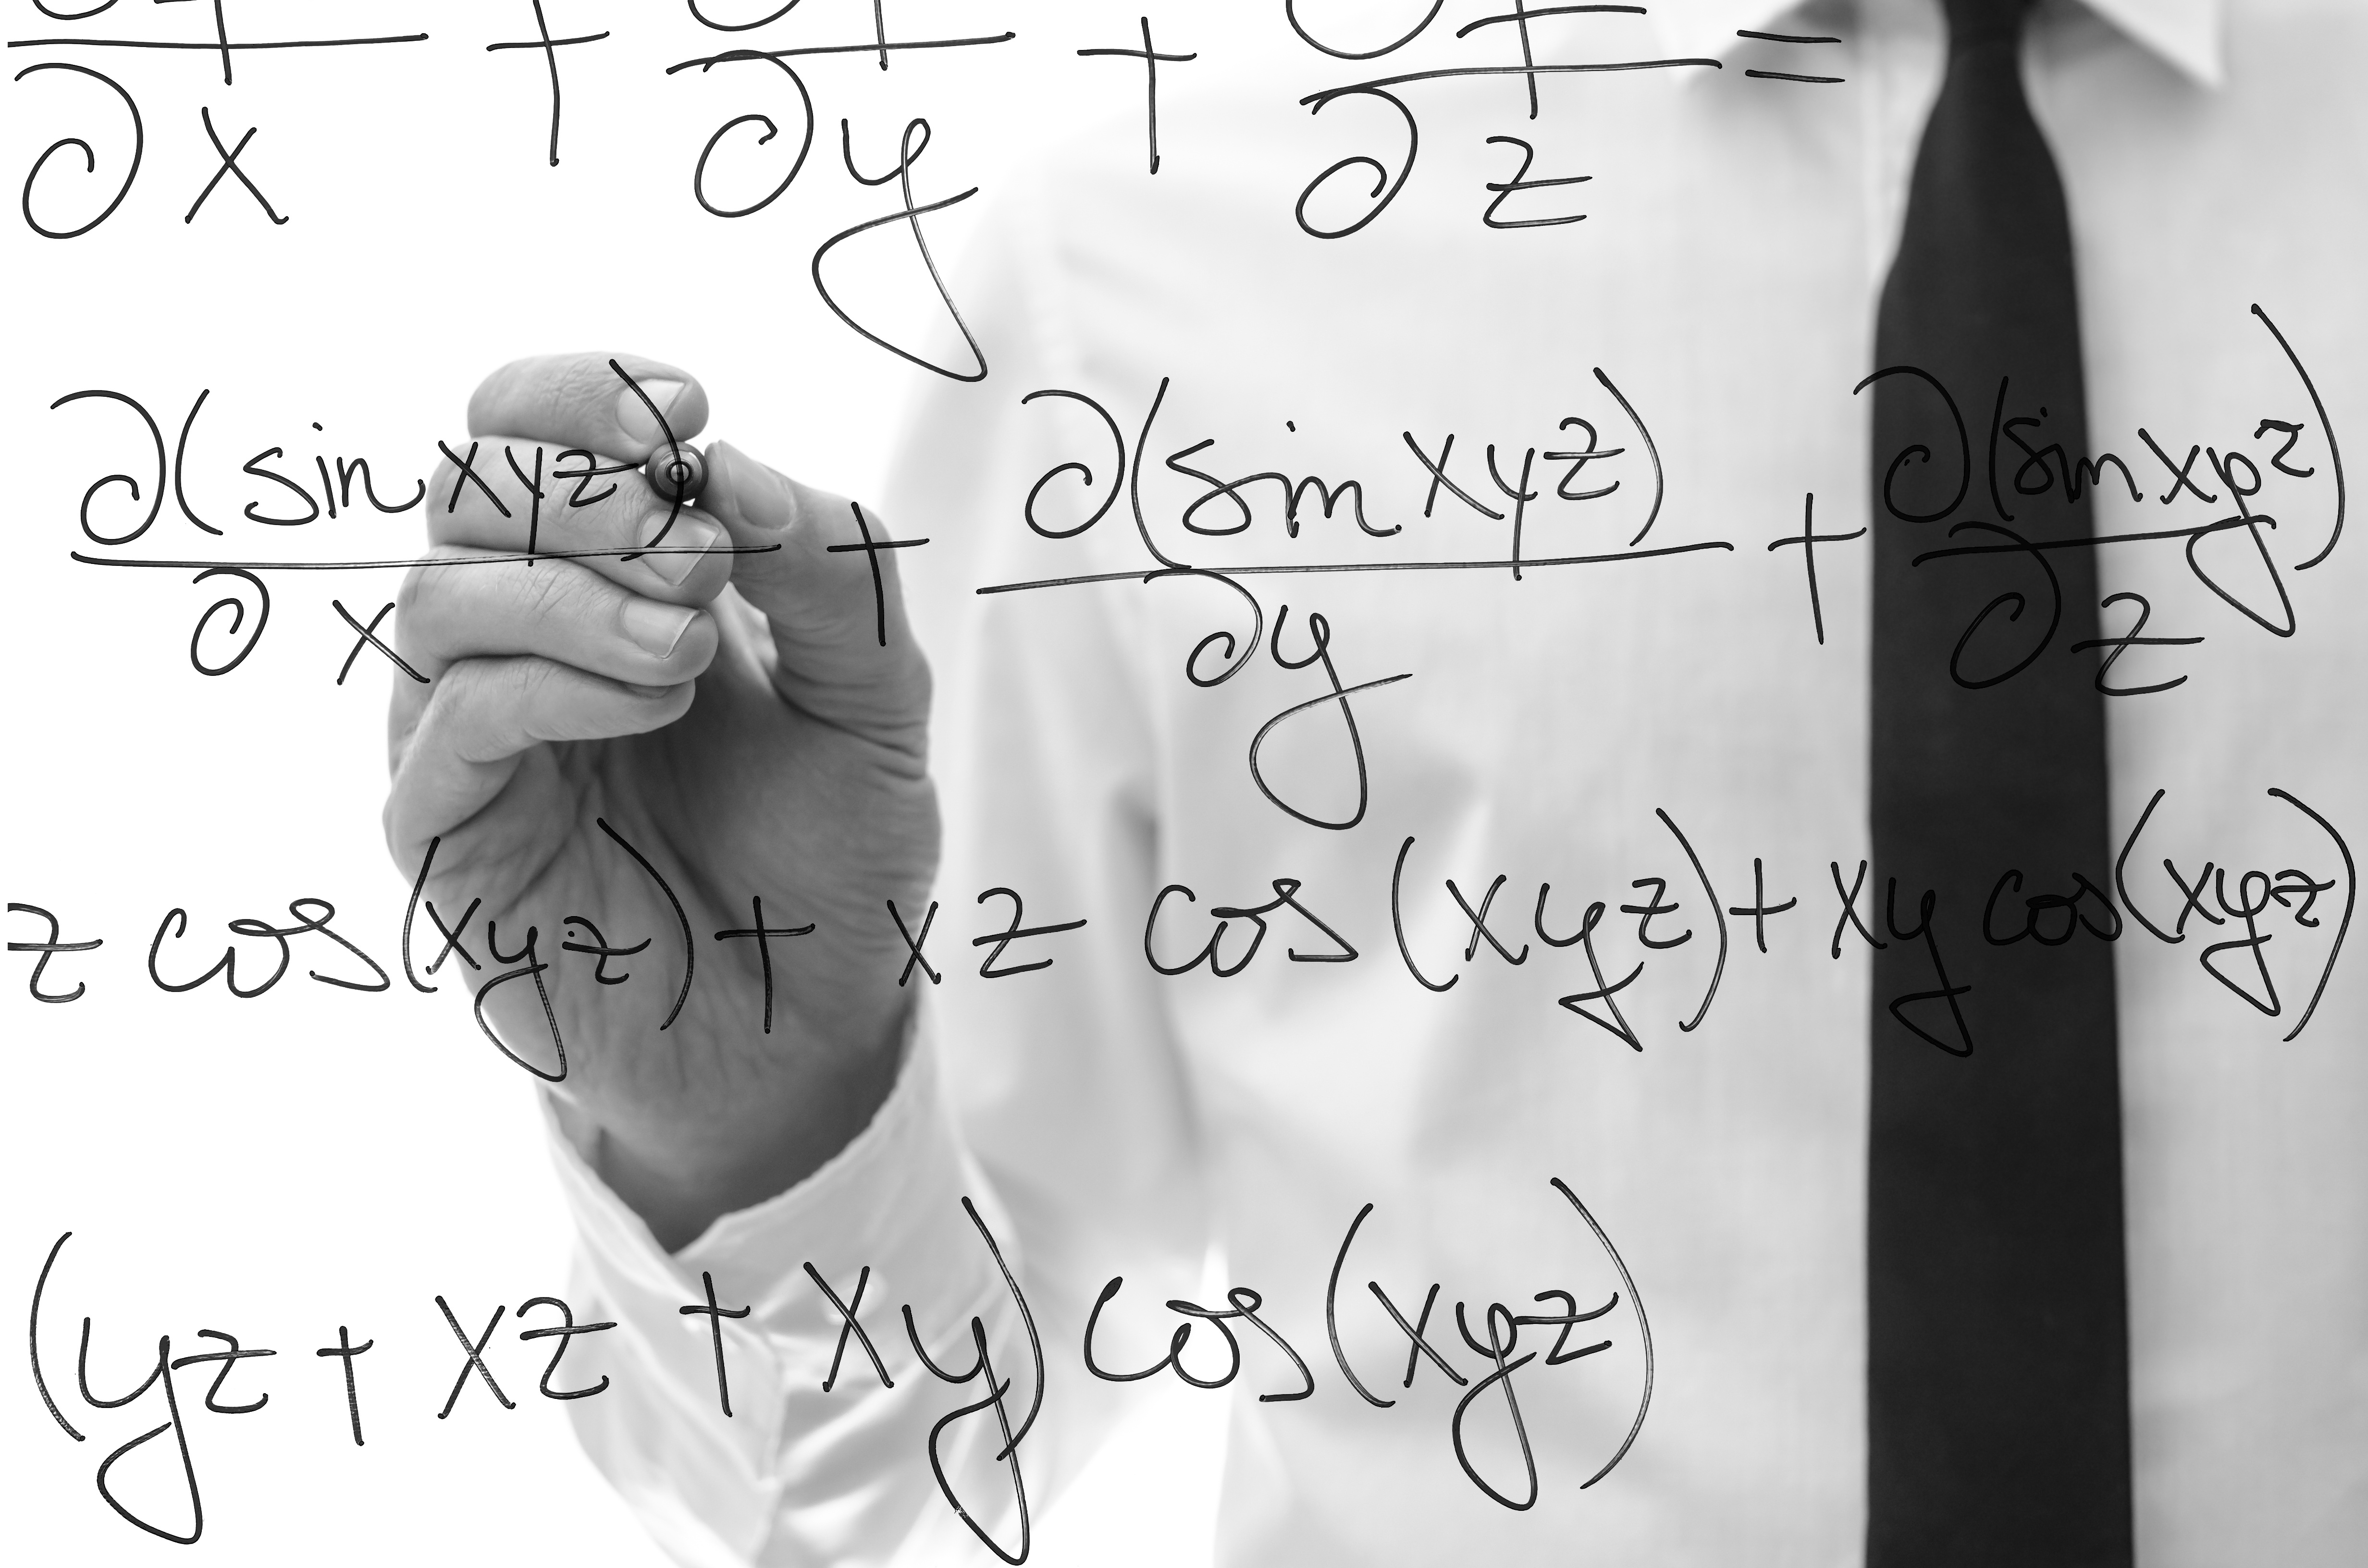 ∂f/∂x + ∂f/∂y + ∂f/∂z =
∂(sin xyz)/∂x + ∂(sin xyz)/∂y + ∂(sin xyz)/∂z
z cos(xyz) + xz cos(xyz) + xy cos(xyz)
(yz + xz + xy) cos(xyz)